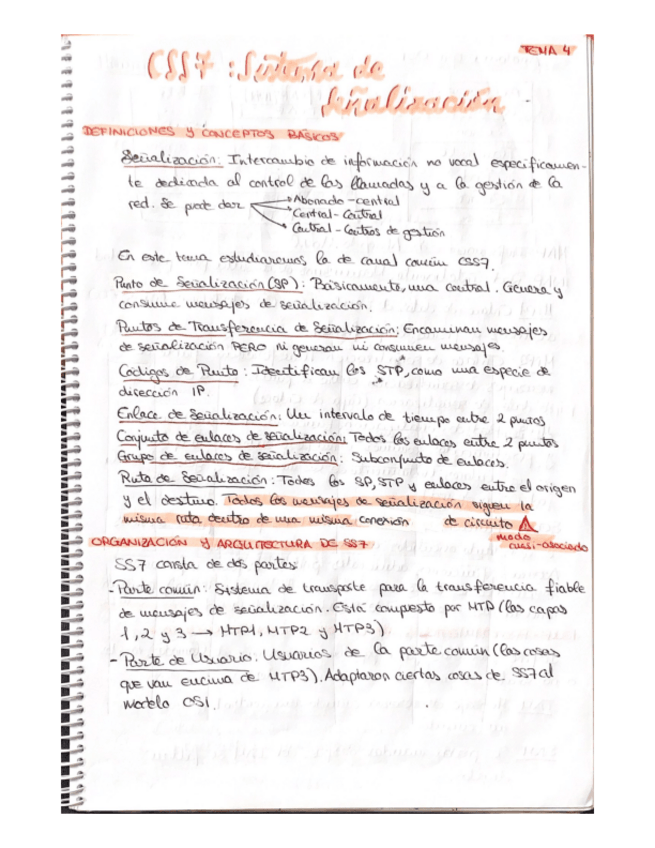 TEMA 4
CSS7: Sistema de
señalización
DEFINICIONES Y CONCEPTOS BÁSICOS
Señalización: Intercambio de información no vocal específicamen-
te dedicada al control de las llamadas y a la gestión de la
red. Se puede dar
Abonado-central
Central-Central
Central-Centros de gestión
En este tema estudiaremos la de canal común CSS7.
Punto de Señalización (SP): Básicamente, una central. Genera y
consume mensajes de señalización.
Puntos de Transferencia de Señalización: Encaminan mensajes
de señalización PERO ni generan ni consumen mensajes.
Códigos de Punto: Identifican los STP, como una especie de
dirección IP.
Enlace de Señalización: Un intervalo de tiempo entre 2 puntos
Conjunto de enlaces de señalización: Todos los enlaces entre 2 puntos
Grupo de enlaces de señalización: Subconjunto de enlaces.
Ruta de Señalización: Todos los SP, STP y enlaces entre el origen
y el destino. Todos los mensajes de señalización siguen la
misma ruta dentro de una misma conexión de circuito
modo
cuasi-asociado
ORGANIZACIÓN Y ARQUITECTURA DE SS7
SS7 consta de dos partes:
- Parte común: Sistema de transporte para la transferencia fiable
de mensajes de señalización. Está compuesto por MTP (las capas
1, 2 y 3 → MTP1, MTP2 y MTP3)
- Parte de Usuario: Usuarios de la parte común (las cosas
que van encima de MTP3). Adaptaron ciertas cosas de SS7 al
modelo OSI.